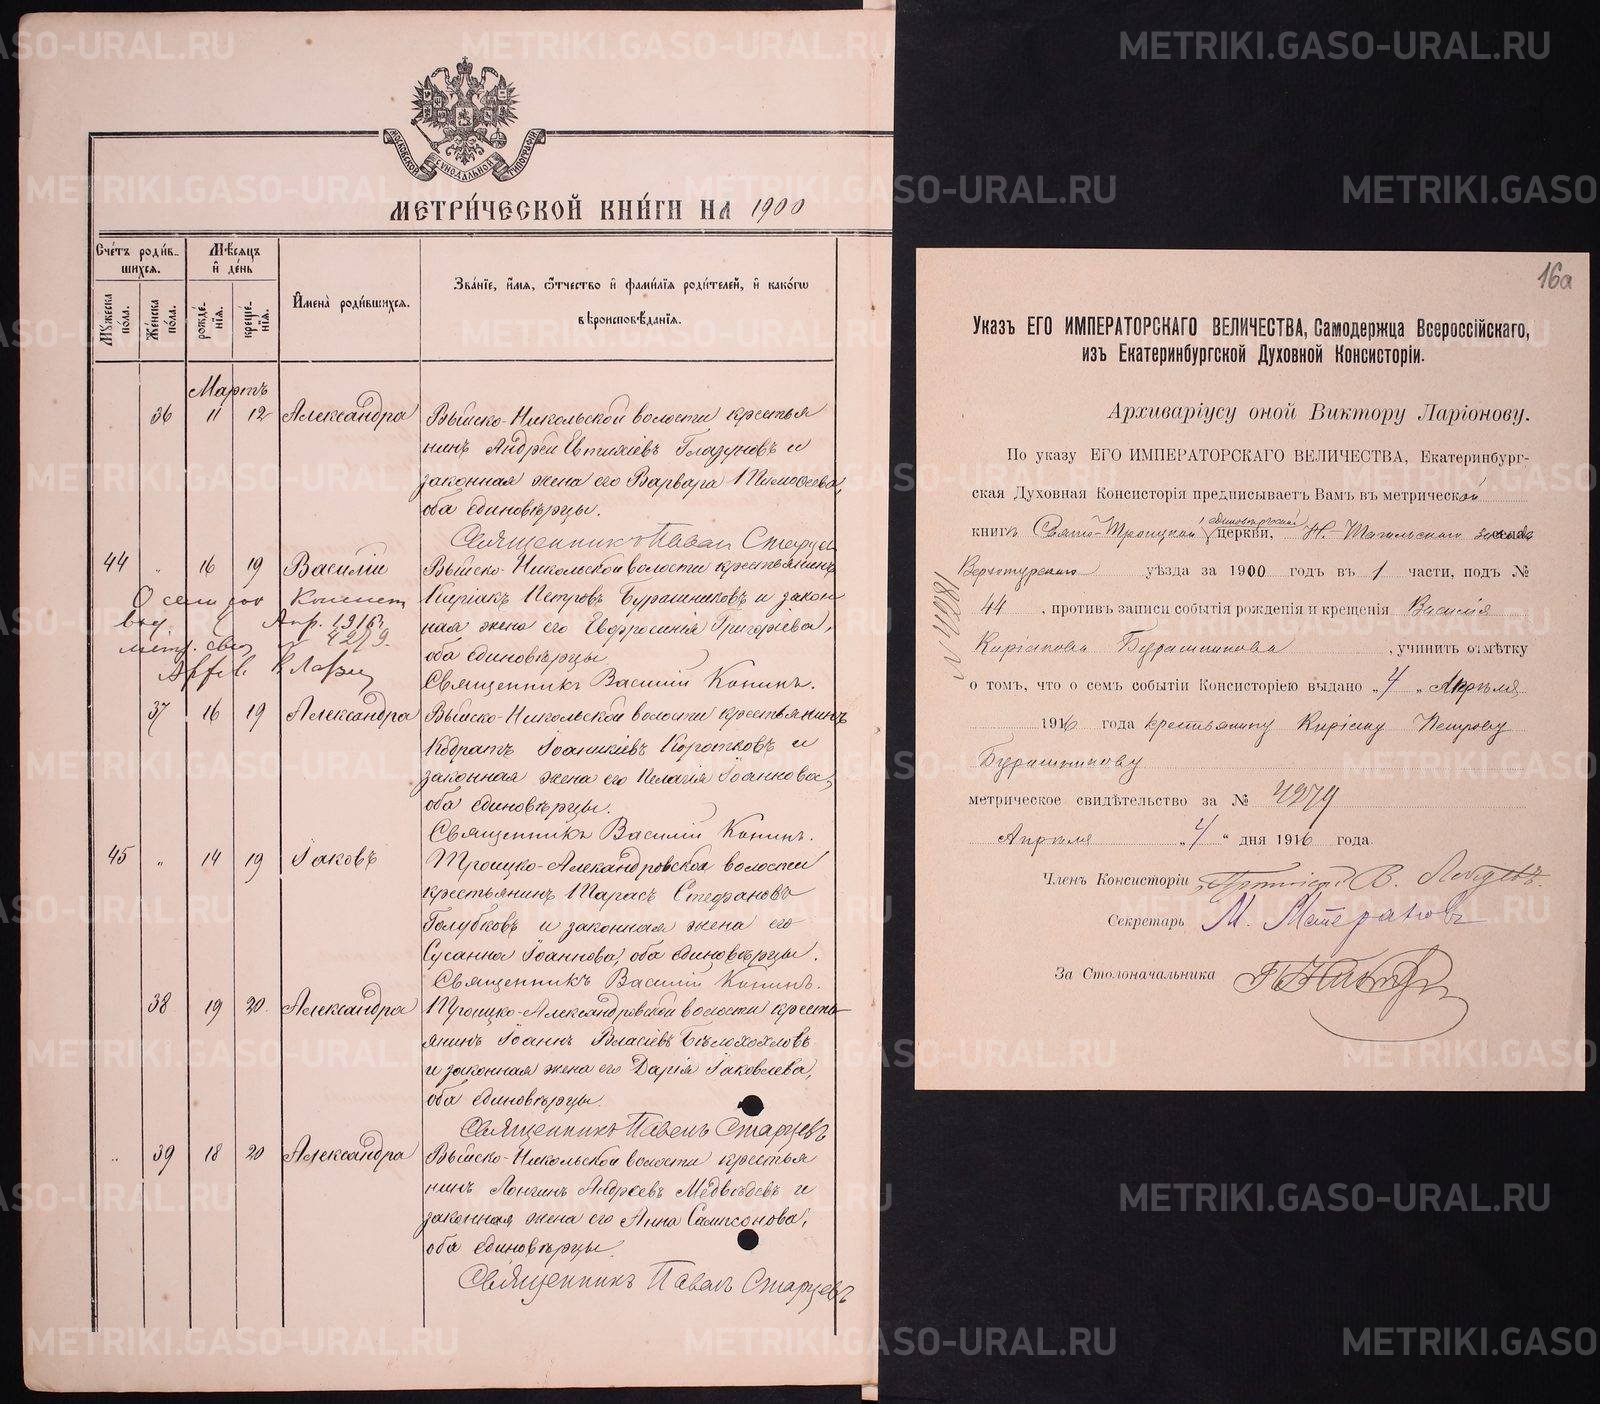 МОСКОВСКОЙ СѴНОДАЛЬНОЙ ТИПОГРАФІИ
МЕТРИ́ЧЕСКОЙ КНИ́ГИ НА 1900
Сче́тъ роди́в-
шихсѧ.
Мѣ́сѧцъ
и҆ де́нь
И҆мена̀ роди́вшихсѧ.
Зва́нїе, и҆́мѧ, ѻ҆́тчество и҆ фами́лїѧ роди́телей, и҆ како́гѡ
вѣроисповѣ́данїѧ.
Мꙋ́жеска
по́ла.
Же́нска
по́ла.
рожде́-
нїѧ.
креще́-
нїѧ.
Мартъ
36 11 12 Александра Выйско-Никольской волости крестья
нинъ Андрей Евтихіевъ Глазуновъ и
законная жена его Варвара Тимоѳеева,
оба единовѣрцы.
Священникъ Павел Старцев
44 " 16 19 Василій Выйско-Никольской волости крестьянинъ
О сем Консист Киріакъ Петровъ Бурашниковъ и закон
выд 4 Апр. 1916 г. ная жена его Евфросинія Григоріева,
метр. свид № 4279. оба единовѣрцы
Архив. В Ларіо Священникъ Василій Копинъ.
37 16 19 Александра Выйско-Никольской волости крестьянинъ
Кодратъ Іоанникіевъ Коротковъ и
законная жена его Пелагія Іоаннова,
оба единовѣрцы.
Священникъ Василій Копинъ.
45 " 14 19 Іаковъ Троицко-Александровской волости
крестьянинъ Тарасъ Стефановъ
Голубковъ и законная жена его
Сусанна Іоаннова, оба единовѣрцы.
Священникъ Василій Копинъ.
38 19 20 Александра Троицко-Александровской волости кресть-
янинъ Іоаннъ Власіевъ Бѣлохохловъ
и законная жена его Дарія Іаковлева,
оба единовѣрцы.
Священникъ Павелъ Старцевъ
" 39 18 20 Александра Выйско-Никольской волости крестья
нинъ Лонгинъ Андреевъ Медвѣдевъ и
законная жена его Анна Сампсонова,
оба единовѣрцы.
Священникъ Павелъ Старцевъ
16а
Указъ ЕГО ИМПЕРАТОРСКАГО ВЕЛИЧЕСТВА, Самодержца Всероссійскаго,
изъ Екатеринбургской Духовной Консисторіи.
Архиваріусу оной Виктору Ларіонову.
По указу ЕГО ИМПЕРАТОРСКАГО ВЕЛИЧЕСТВА, Екатеринбург-
ская Духовная Консисторія предписываетъ Вамъ въ метрической
единовѣрческой
книгѣ Свято-Троицкой церкви, Н.-Тагильскаго завода села
Верхотурскаго уѣзда за 1900 годъ въ 1 части, подъ №
44, противъ записи событія рожденія и крещенія Василія
Киріакова Бурашникова, учинить отмѣтку
о томъ, что о семъ событіи Консисторіею выдано „4„ Апрѣля
1916 года крестьянину Киріаку Петрову
Бурашникову
метрическое свидѣтельство за № 4279
Апрѣля „4“ дня 1916 года.
Членъ Консисторіи Протоіерей В.
Секретарь М.
За Столоначальника
METRIKI.GASO-URAL.RU